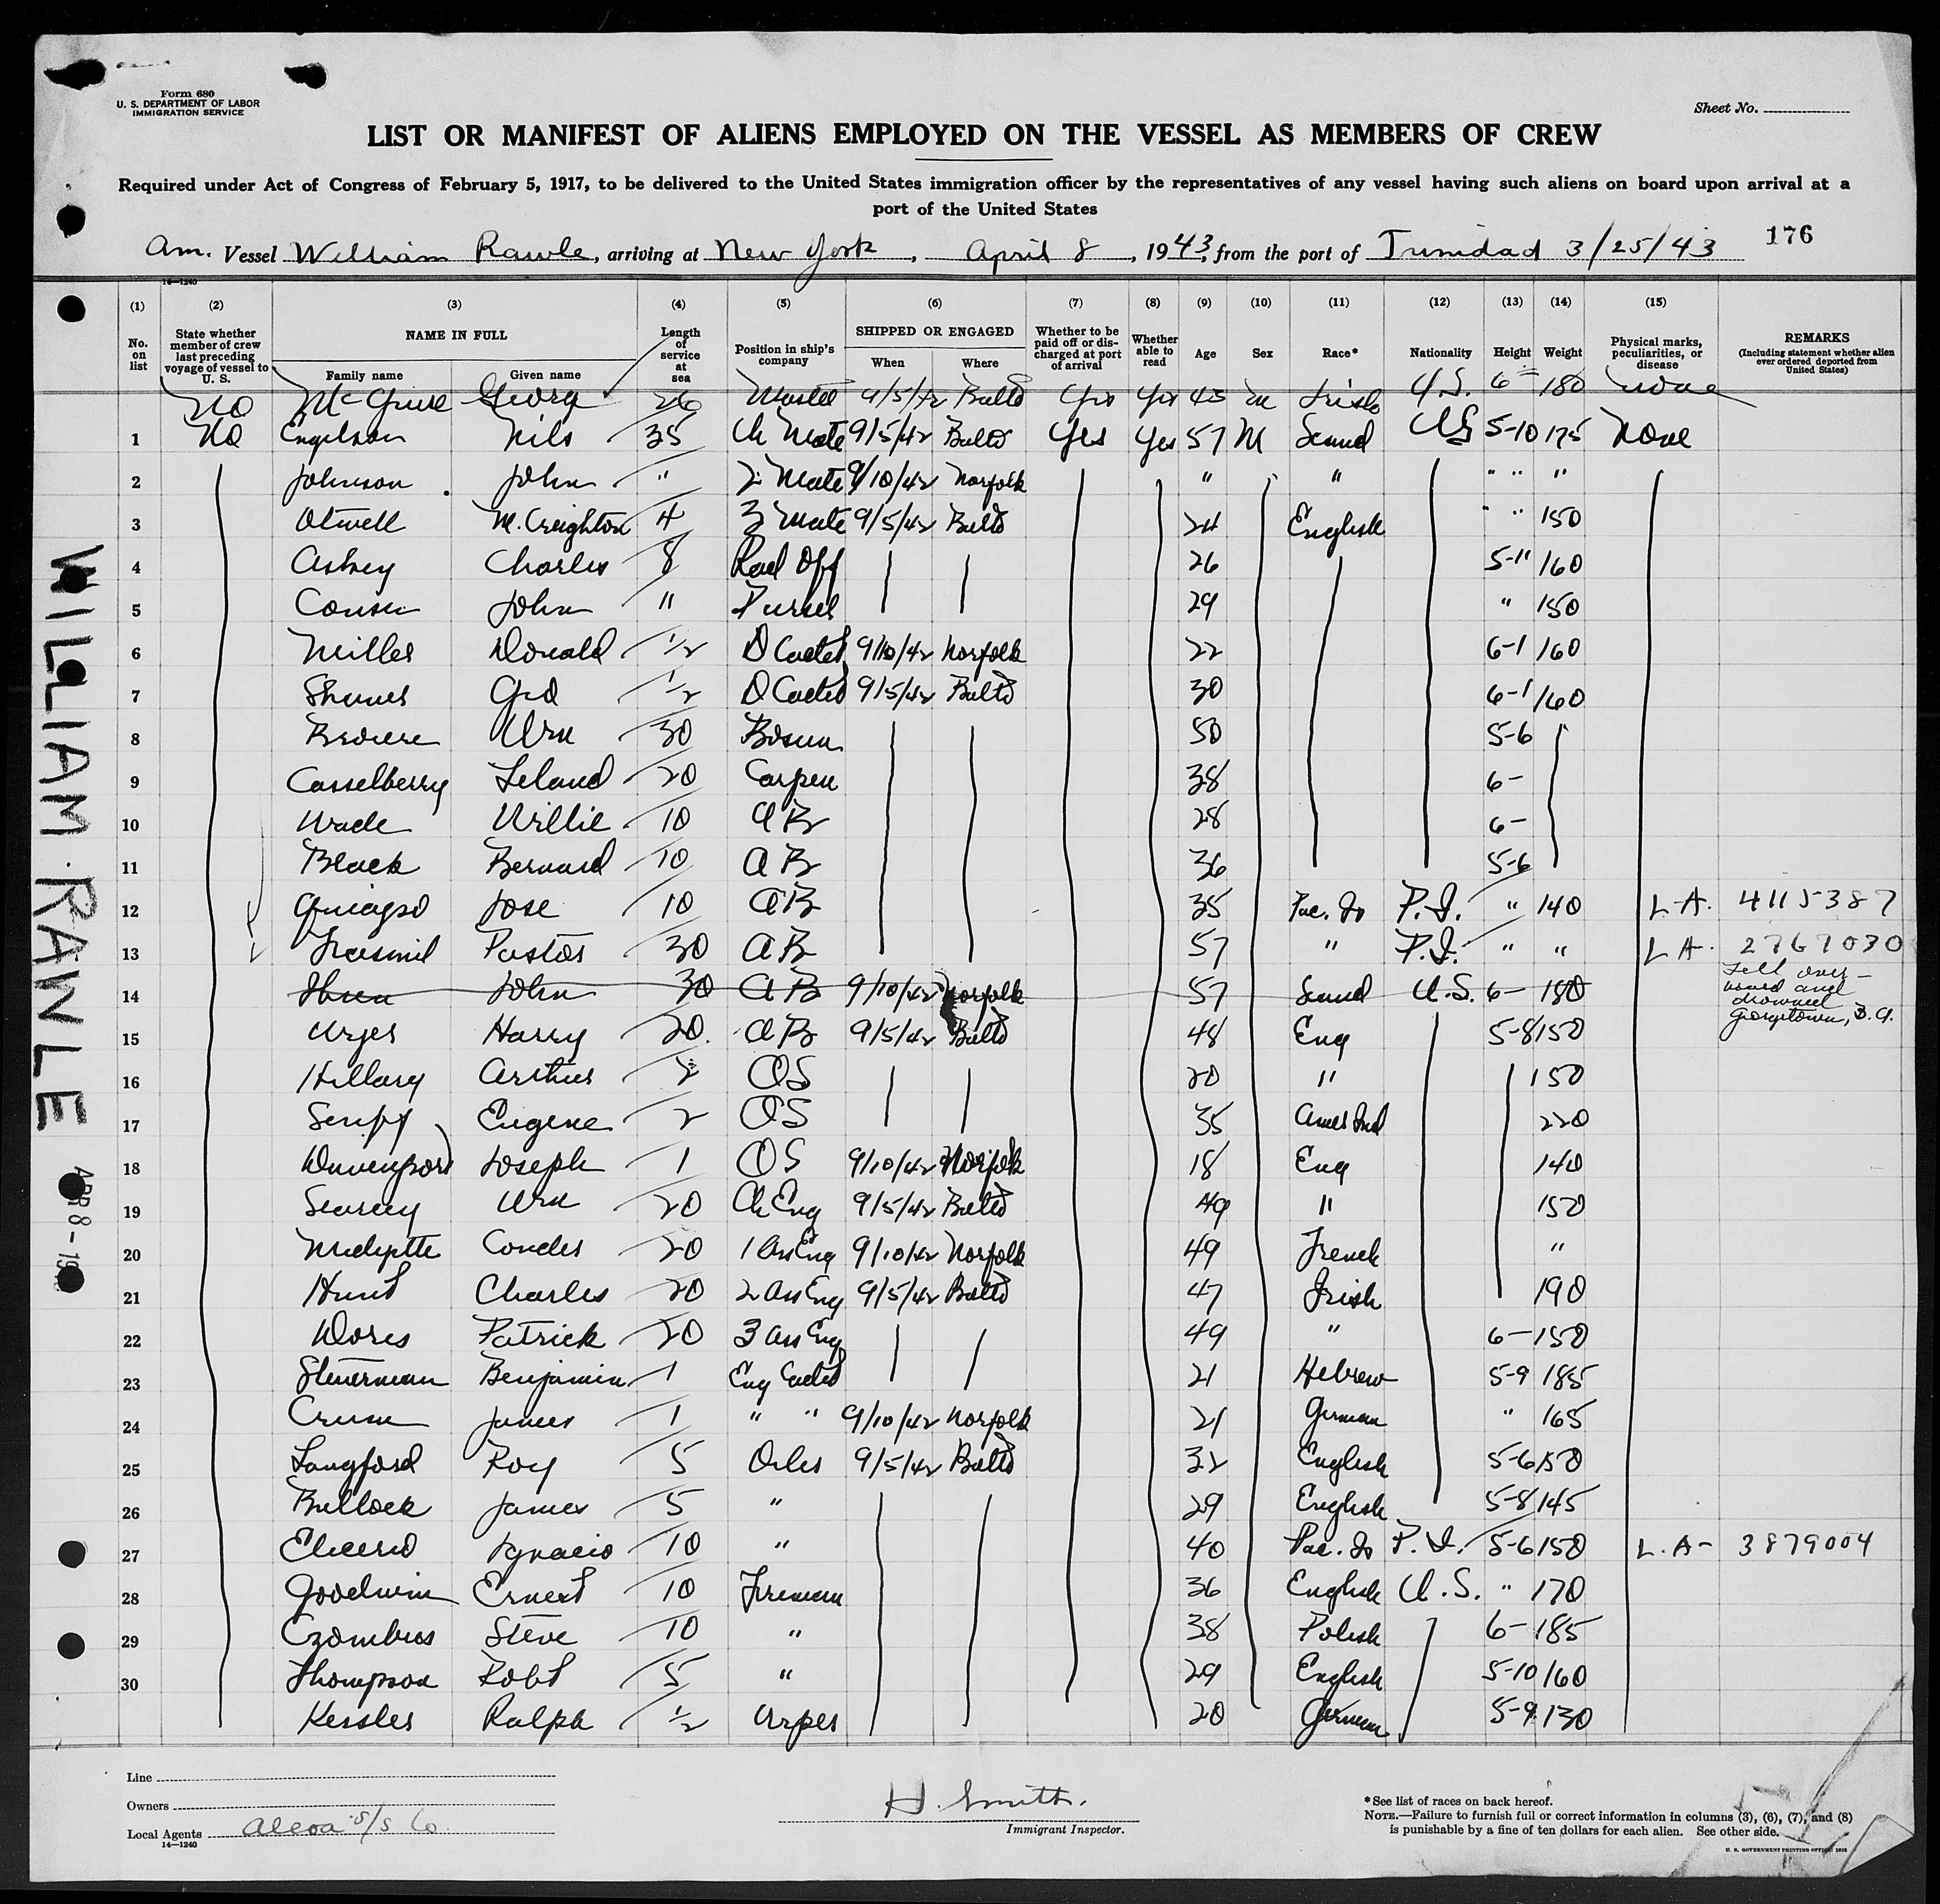 Form 680
U. S. DEPARTMENT OF LABOR
IMMIGRATION SERVICE
Sheet No.
LIST OR MANIFEST OF ALIENS EMPLOYED ON THE VESSEL AS MEMBERS OF CREW
Required under Act of Congress of February 5, 1917, to be delivered to the United States immigration officer by the representatives of any vessel having such aliens on board upon arrival at a
port of the United States
Am. Vessel William Rawle, arriving at New York, April 8, 1943, from the port of Trinidad 3/25/43 176
14—1240
(1) (2) (3) (4) (5) (6) (7) (8) (9) (10) (11) (12) (13) (14) (15)
No. on list State whether member of crew last preceding voyage of vessel to U. S. NAME IN FULL Family name Given name Length of service at sea Position in ship's company SHIPPED OR ENGAGED When Where Whether to be paid off or discharged at port of arrival Whether able to read Age Sex Race* Nationality Height Weight Physical marks, peculiarities, or disease REMARKS (Including statement whether alien ever ordered deported from United States)
No McGuire George 26 Master 9/5/42 Balto Yes Yes 45 M Irish U.S. 6 180 None
1 No Engelson Nils 35 Ch Mate 9/5/42 Balto Yes Yes 57 M Scand US 5-10 175 None
2 Johnson John " 2 Mate 9/10/42 Norfolk " " " " "
3 Otwell M. Creighton 4 3 Mate 9/5/42 Balto 24 English " " 150
4 Askey Charles 8 Rad Off 26 5-11 160
5 John " Purser 29 " 150
6 Miller Donald 1/2 D Cadet 9/10/42 Norfolk 22 6-1 160
7 Geo 1/2 D Cadet 9/5/42 Balto 30 6-1 160
8 Wm 30 Bosun 50 5-6
9 Casselberry Leland 20 Carpen 38 6-
10 Wade Willie 10 AB 28 6-
11 Black Bernard 10 AB 36 5-6
12 Jose 10 AB 35 Pac. Is P.I. " 140 L-A. 4115387
13 Pastor 30 AB 57 " P.I. " " L A. 2767030
14 John 30 AB 9/10/42 Norfolk 57 Scand U.S. 6- 180 Fell over-
board and
drowned
Georgetown, B.G.
15 Harry 20. AB 9/5/42 Balto 48 Eng 5-8 150
16 Hillary Arthur 2 OS 20 " 150
17 Eugene 2 OS 35 Amer Ind 220
18 Davenport Joseph 1 OS 9/10/42 Norfolk 18 Eng 140
19 Searcy Wm 20 Ch Eng 9/5/42 Balto 49 " 150
20 Midyette 20 1 Ass Eng 9/10/42 Norfolk 49 French "
21 Hunt Charles 20 2 Ass Eng 9/5/42 Balto 47 Irish 190
22 Patrick 20 3 Ass Eng 49 " 6- 150
23 Steuerman Benjamin 1 Eng Cadet 21 Hebrew 5-9 185
24 Crum James 1 " " 9/10/42 Norfolk 21 German " 165
25 Langford Roy 5 Oiler 9/5/42 Balto 32 English 5-6 150
26 Bullock James 5 " 29 English 5-8 145
27 Ignacio 10 " 40 Pac. Is P.I. 5-6 150 L.A- 3879004
28 Goodwin Ernest 10 Fireman 36 English U.S. " 170
29 Steve 10 " 38 Polish 6- 185
30 Thompson Robt 5 " 29 English 5-10 160
Kessler Ralph 1/2 Wiper 20 German 5-9 130
WILLIAM RAWLE
APR 8 - 19
Line
Owners
Local Agents Alcoa S/S Co.
14—1240
H. Smith.
Immigrant Inspector.
* See list of races on back hereof.
NOTE.—Failure to furnish full or correct information in columns (3), (6), (7), and (8)
is punishable by a fine of ten dollars for each alien. See other side.
U. S. GOVERNMENT PRINTING OFFICE